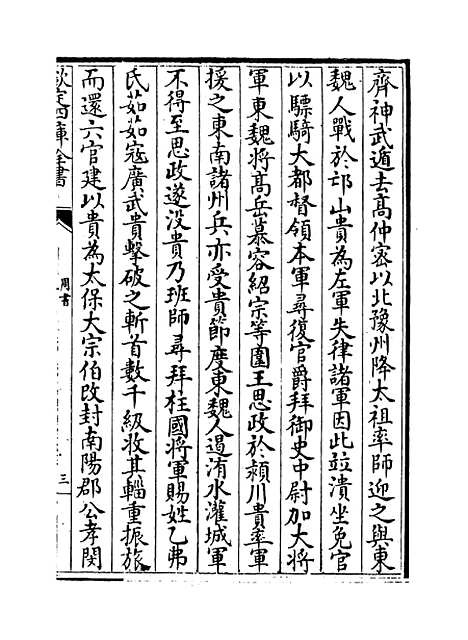 齊神武遁去髙仲宻以北豫州降太祖率師迎之與東
魏人戰於邙山貴為左軍失律諸軍因此竝潰坐免官
以驃騎大都督領本軍尋復官爵拜御史中尉加大將
軍東魏將髙岳慕容紹宗等圍王思政於潁川貴率軍
援之東南諸州兵亦受貴節度東魏人遏洧水灌城軍
不得至思政遂没貴乃班師尋拜柱國將軍賜姓乙弗
氏茹茹寇廣武貴擊破之斬首數千級收其輜重振旅
而還六官建以貴為太保大宗伯改封南陽郡公孝閔
欽定四庫全書
周書
三